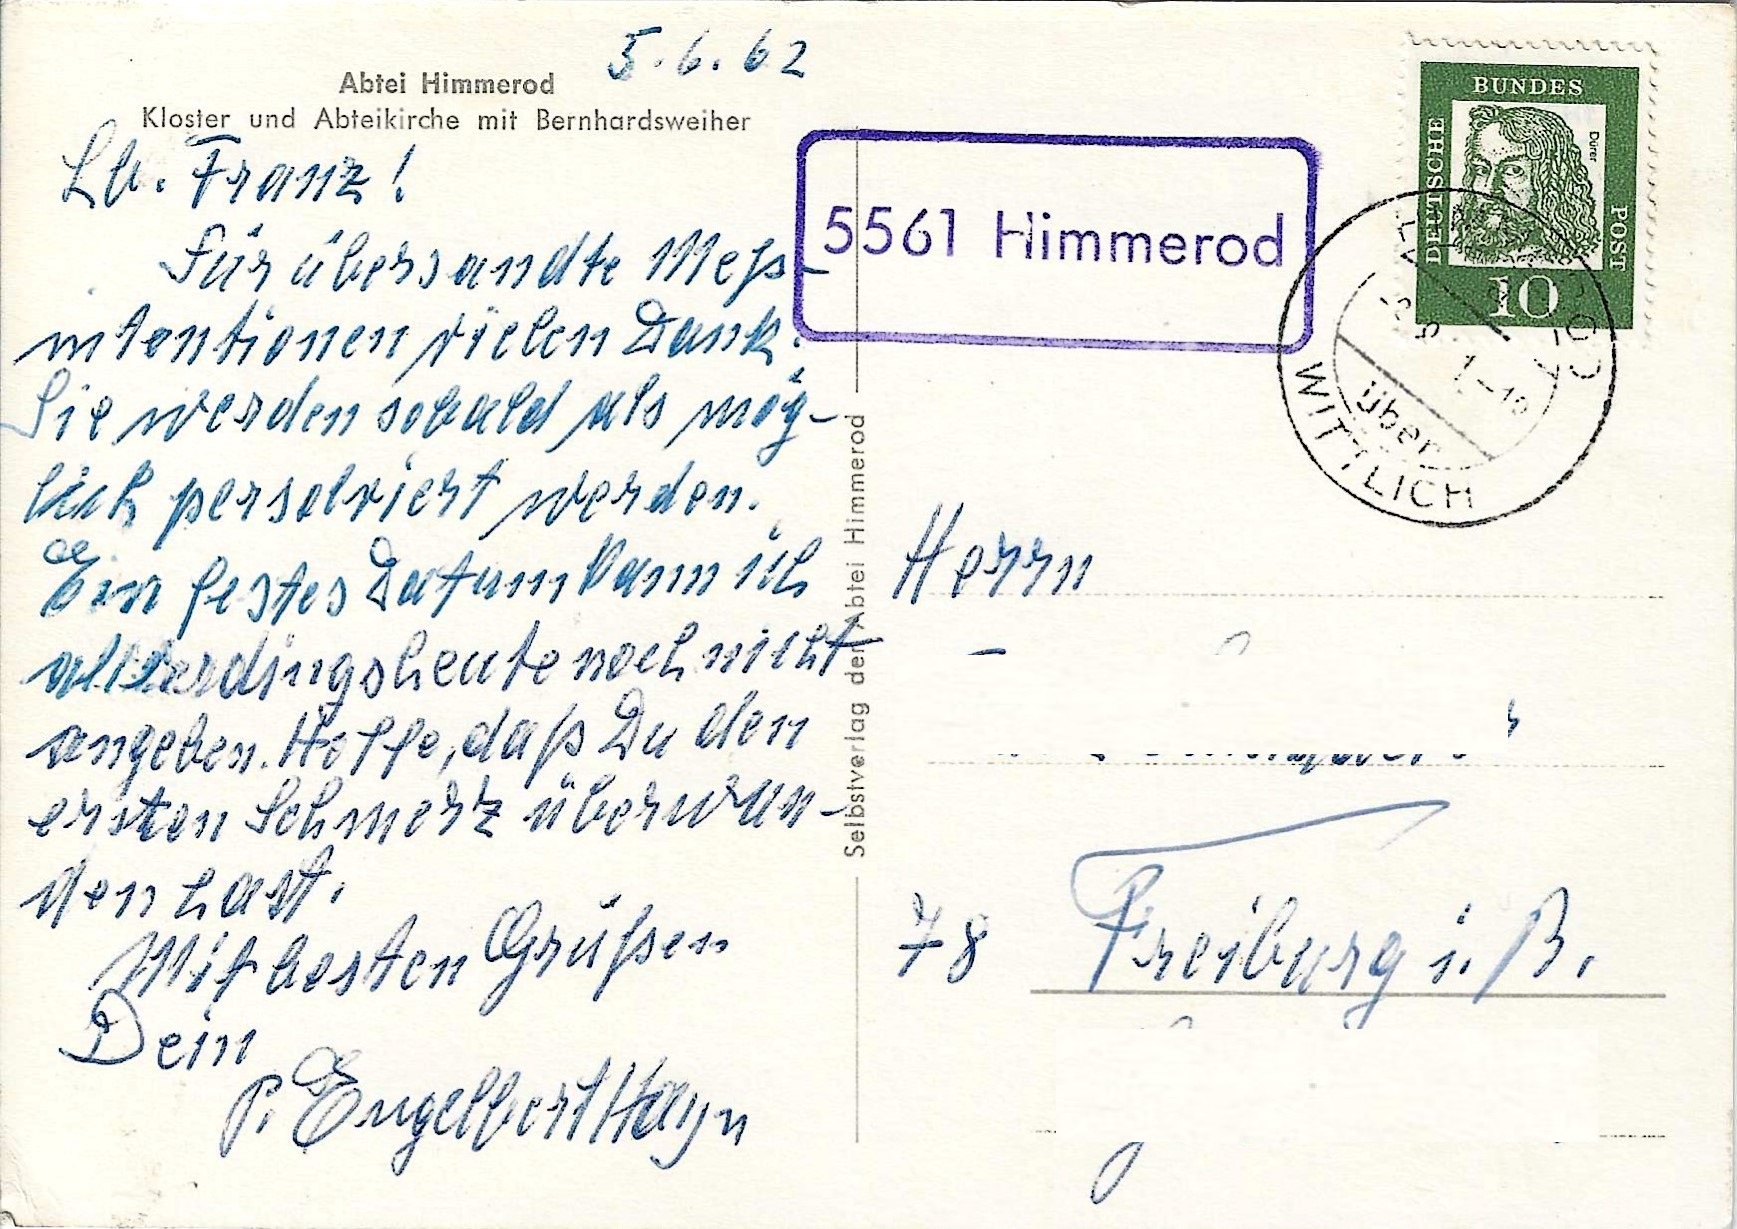 5.6.62
Abtei Himmerod
Kloster und Abteikirche mit Bernhardsweiher
Lb. Franz!
Für übersandte Mess-
intentionen vielen Dank.
Sie werden sobald als mög-
lich persolviert werden.
Ein festes Datum kann ich
allerdings heute noch nicht
angeben. Hoffe, daß Du den
ersten Schmerz überwun-
den hast.
Mit besten Grüßen
Dein
P. Engelbert Hayn
Selbstverlag der Abtei Himmerod
5561 Himmerod
DEUTSCHE BUNDES POST
Dürer
10
über
WITTLICH
Herrn
78 Freiburg i. B.